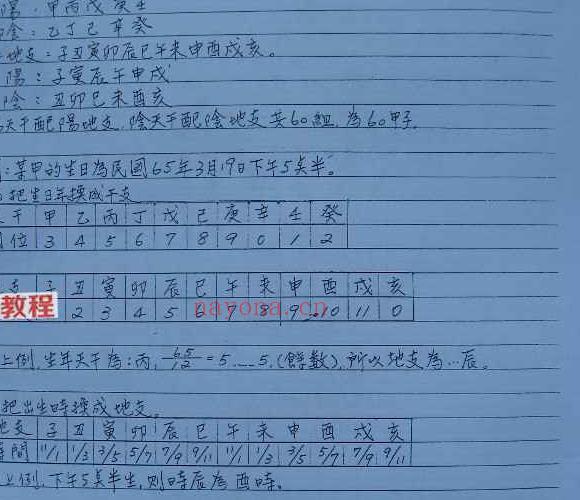 陽：甲丙戊庚壬
陰：乙丁己辛癸
地支：子丑寅卯辰巳午未申酉戌亥。
陽：子寅辰午申戌
陰：丑卯巳未酉亥
天干配陽地支，陰天干配陰地支共60組，為60甲子。
：某甲的生日為民國65年3月19日下午5点半。
把生日年換成干支
干 甲 乙 丙 丁 戊 己 庚 辛 壬 癸
位 3 4 5 6 7 8 9 0 1 2
支 子 丑 寅 卯 辰 巳 午 未 申 酉 戌 亥
教程 2 3 4 5 6 7 8 9 10 11 0
nayona.cn
上例，生年天干為：丙，65/12=5……5，(餘數)，所以地支為…辰。
把出生時換成地支。
支 子 丑 寅 卯 辰 巳 午 未 申 酉 戌 亥
時間 11/1 1/3 3/5 5/7 7/9 9/11 11/1 1/3 3/5 5/7 7/9 9/11
上例，下午5点半生，則時辰為酉時。